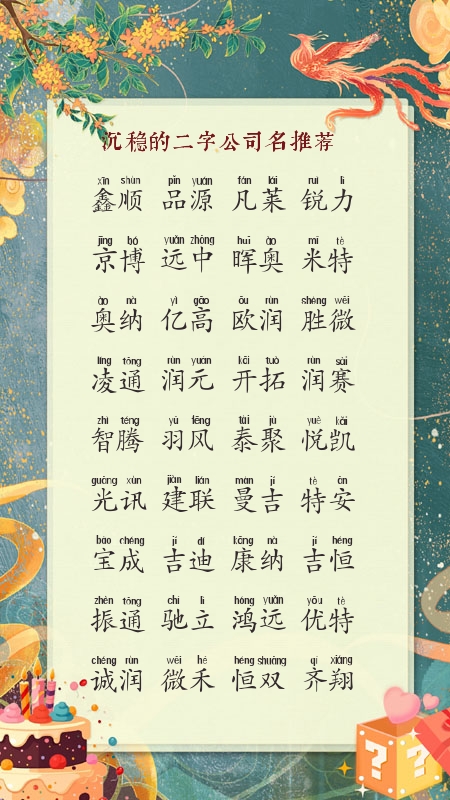 沉稳的二字公司名推荐
xīn shùn pǐn yuán fán lái ruì lì
鑫顺 品源 凡莱 锐力
jīng bó yuǎn zhōng huī ào mǐ tè
京博 远中 晖奥 米特
ào nà yì gāo ōu rùn shèng wēi
奥纳 亿高 欧润 胜微
líng tōng rùn yuán kāi tuò rùn sài
凌通 润元 开拓 润赛
zhì téng yǔ fēng tài jù yuè kǎi
智腾 羽风 泰聚 悦凯
guāng xùn jiàn lián màn jí tè ān
光讯 建联 曼吉 特安
bǎo chéng jí dí kāng nà jí héng
宝成 吉迪 康纳 吉恒
zhèn tōng chí lì hóng yuǎn yōu tè
振通 驰立 鸿远 优特
chéng rùn wēi hé héng shuāng qí xiáng
诚润 微禾 恒双 齐翔
? ?